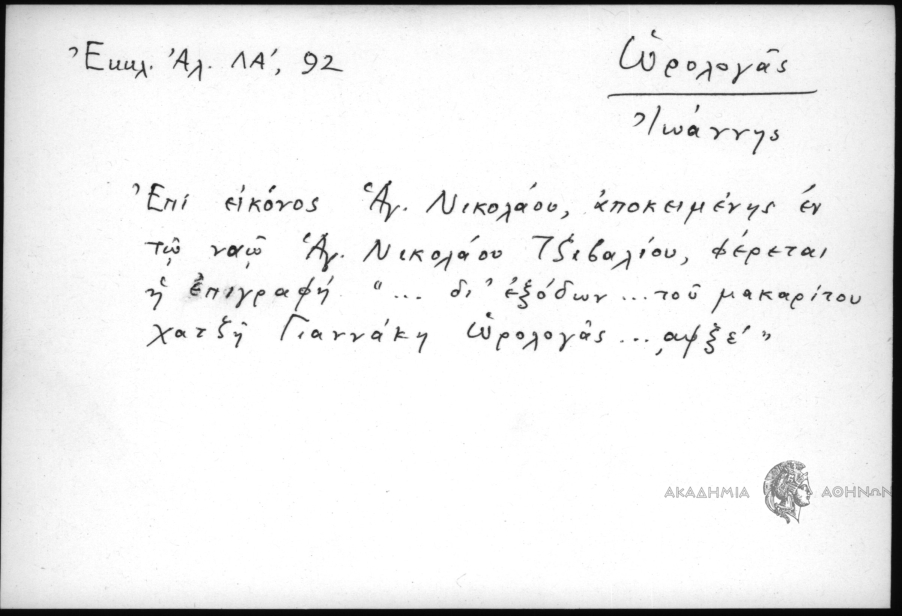 Ἐκκλ. Ἀλ. ΛΑ', 92
Ὡρολογᾶς
Ἰωάννης
Ἐπὶ εἰκόνος Ἁγ. Νικολάου, ἀποκειμένης ἐν
τῷ ναῷ Ἁγ. Νικολάου Τζιβαλίου, φέρεται
ἡ ἐπιγραφή "... δι' ἐξόδων ... τοῦ μακαρίτου
χατζῆ Γιαννάκη Ὡρολογᾶς ... ͵αψξε' "
ΑΚΑΔΗΜΙΑ ΑΘΗΝΩΝ